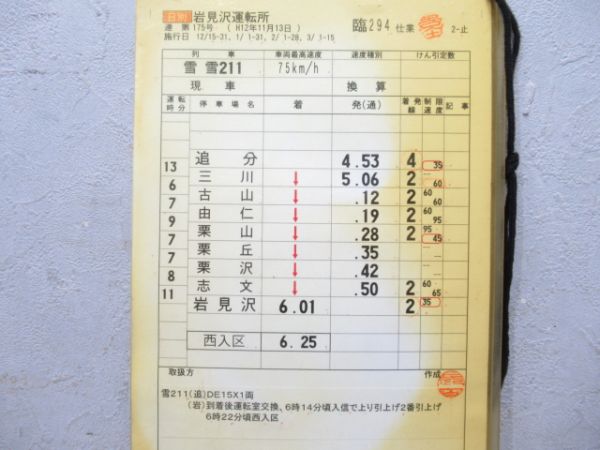 日刻 岩見沢運転所
達 第 175号 ( H12年11月13日 )
施行日 12/15-31, 1/ 1-31, 2/ 1-28, 3/ 1-15
臨294 仕業 2-止
列 車 車両最高速度 速度種別 けん引定数
雪 雪211 75km/h
現 車 換 算
運転時分 停 車 場 名 着 発(通) 着発線 制限速度 記 事
追 分 4.53 4 35
13 三 川 ↓ 5.06 2 60
6 古 山 ↓ .12 2 60 60
7 由 仁 ↓ .19 2 60 95
9 栗 山 ↓ .28 2 95 45
7 栗 丘 ↓ .35
7 栗 沢 ↓ .42
8 志 文 ↓ .50 2 60 65
11 岩見沢 6.01 2 35
西入区 6.25
取扱方 作成
雪211(追)DE15X1両
(岩)到着後運転室交換、6時14分頃入信で上り引上げ2番引上げ
6時22分頃西入区